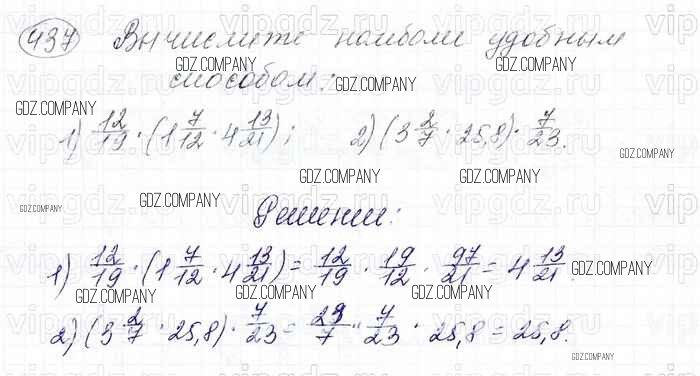 437 Вычислите наиболее удобным
способом:
1) 12/19 · (1 7/12 · 4 13/21); 2) (3 2/7 · 25,8) · 7/23.
Решение:
1) 12/19 · (1 7/12 · 4 13/21) = 12/19 · 19/12 · 97/21 = 4 13/21.
2) (3 2/7 · 25,8) · 7/23 = 23/7 · 7/23 · 25,8 = 25,8.
GDZ.COMPANY
GDZ.COMPANY
GDZ.COMPANY
GDZ.COMPANY
GDZ.COMPANY
GDZ.COMPANY
GDZ.COMPANY
GDZ.COMPANY
GDZ.COMPANY
GDZ.COMPANY
GDZ.COMPANY
GDZ.COMPANY
GDZ.COMPANY
vipgdz.ru